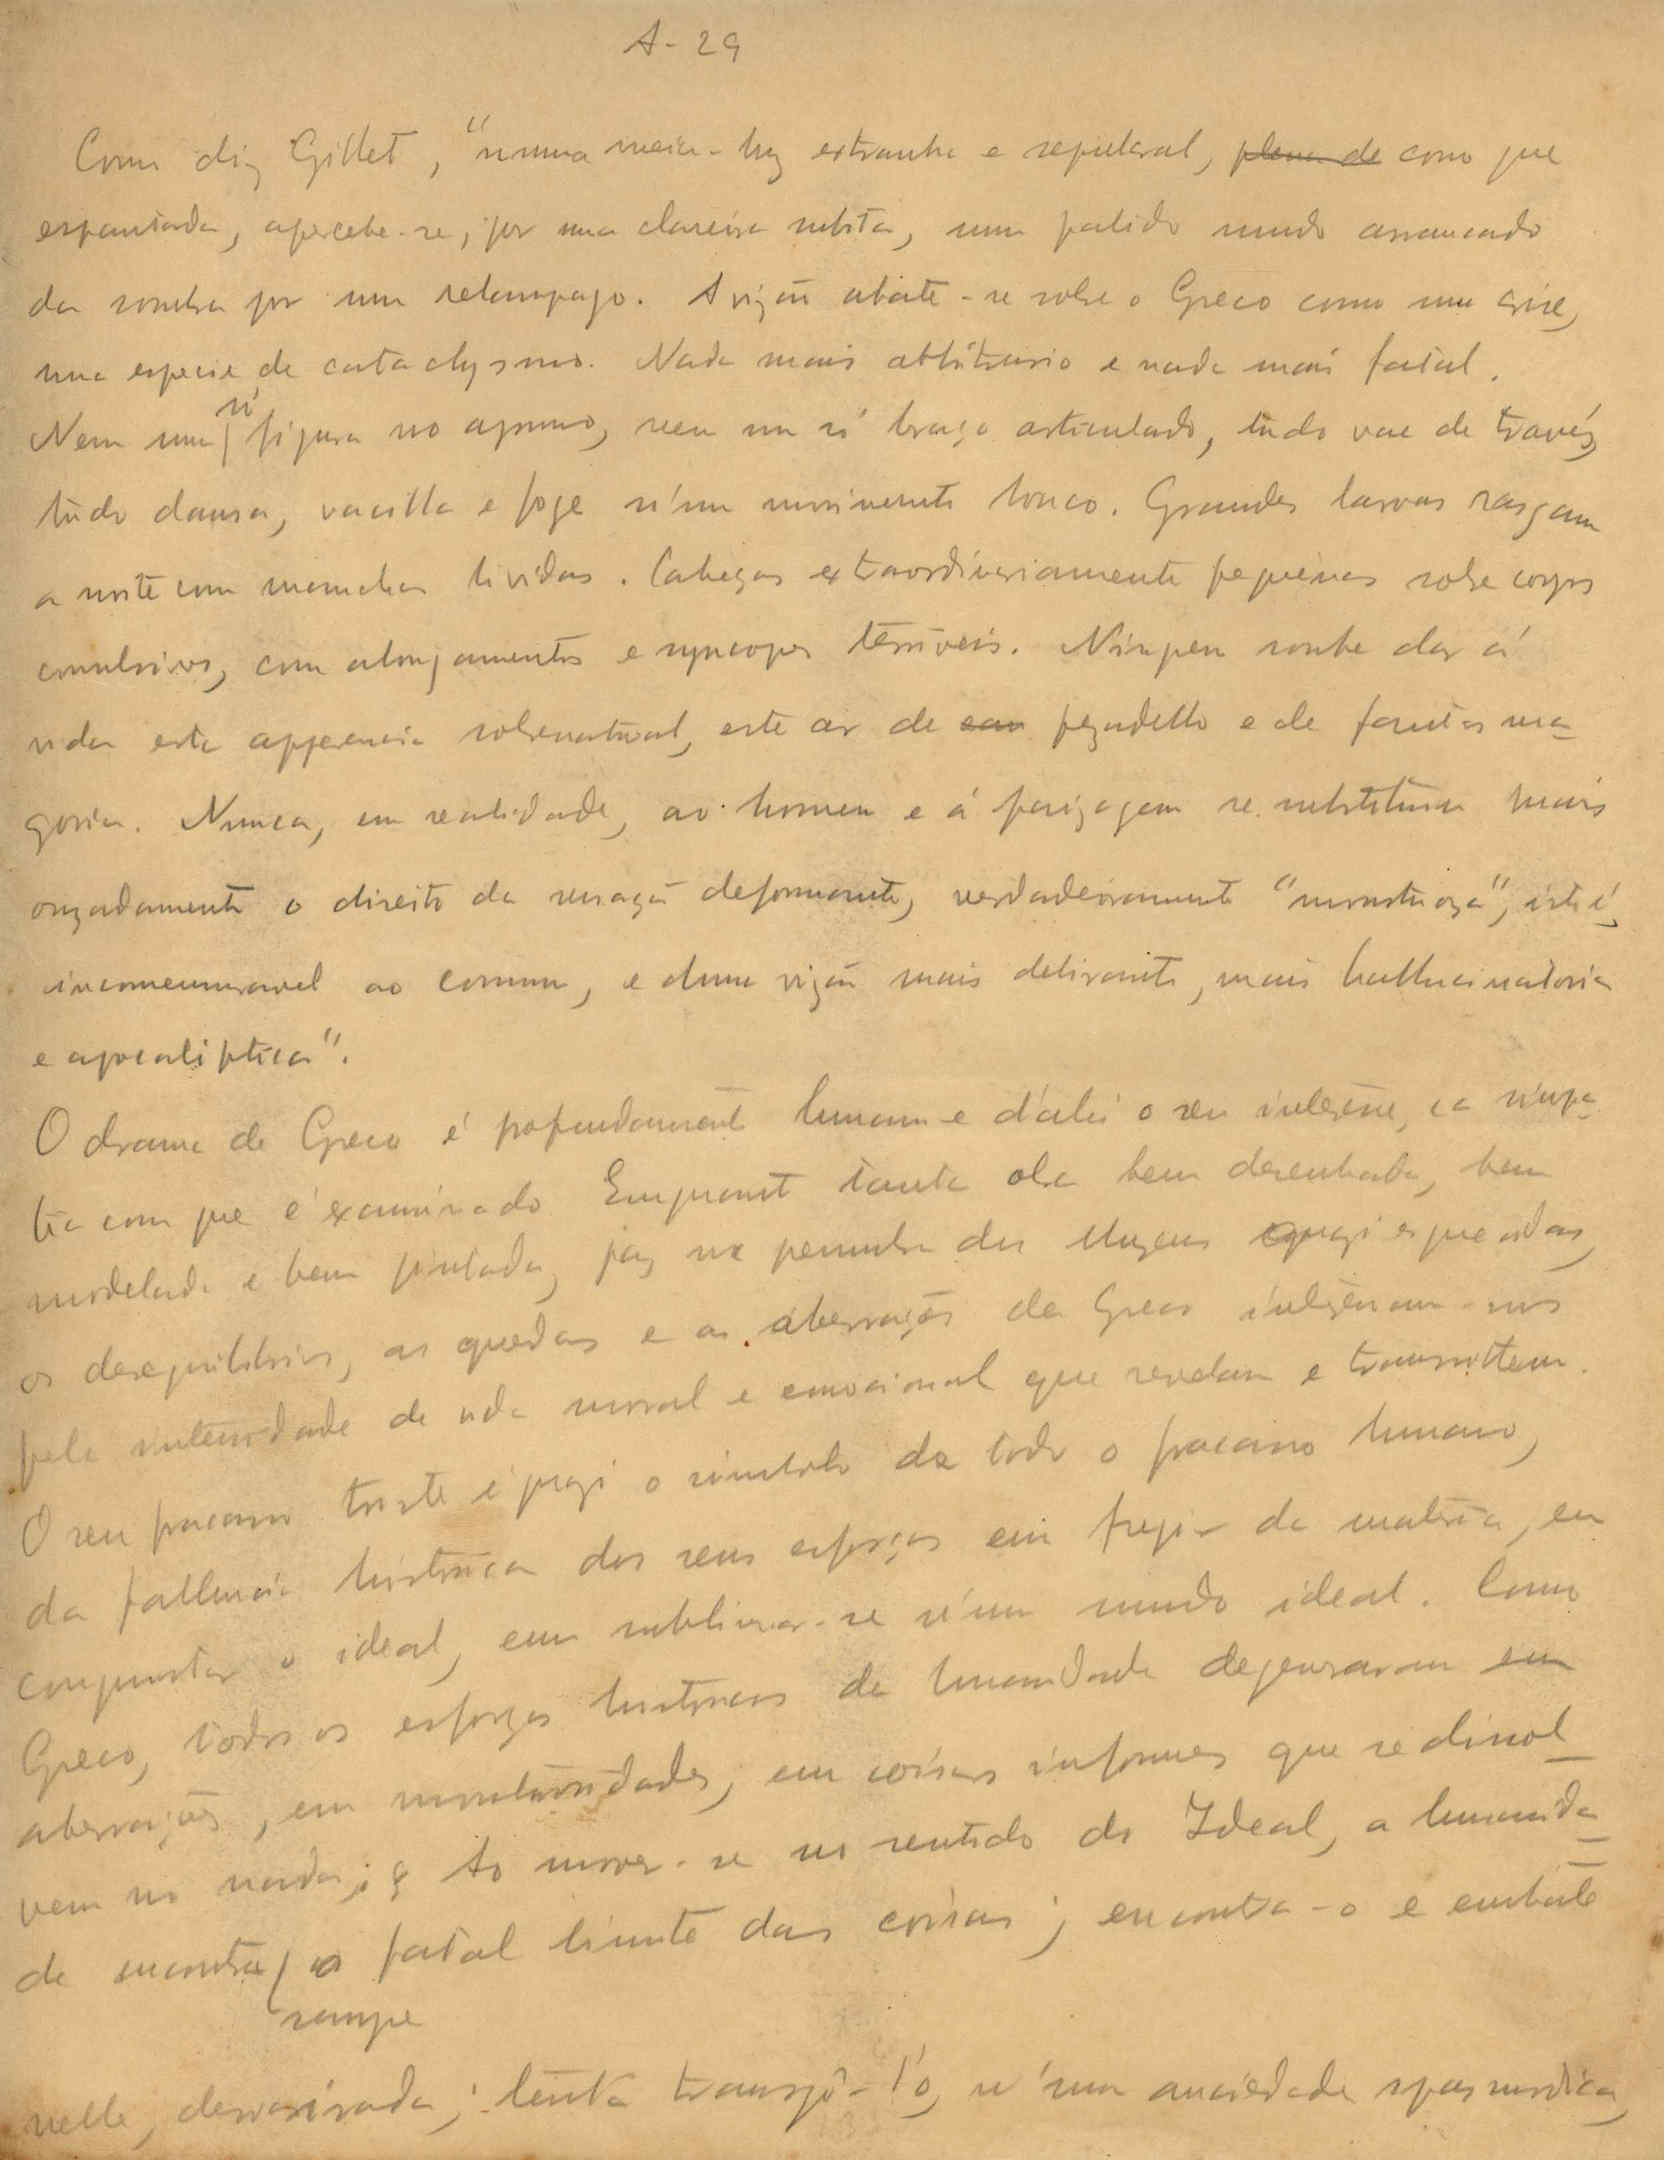 A-29
Como diz Gillet, "numa meia-luz extranha e sepulcral, plena de como que
espantada, apercebe-se, por uma clareira subita, um palido mundo arrancado
da sombra por um relampago. A vizão abate-se sobre o Greco como uma crise,
uma especie de cataclysmo. Nada mais arbitrario e nada mais fatal.
Nem uma só figura no aprumo, nem um só braço articulado, tudo vae de travéz,
tudo dansa, vacilla e foge n'um movimento louco. Grandes larvas rasgam
a noite com manchas lividas. Cabeças extraordinariamente pequenas sobre corpos
convulsivos, com alongamentos e syncopes terriveis. Ninguem soube dar á
vida esta apparencia sobrenatural, este ar de pezadello e de fantasma-
goria. Nunca, em realidade, ao homem e á paizagem se substituiu mais
ouzadamente o direito da sensação deformante, verdadeiramente "monstruoza", isto é,
incomensuravel ao comum, e duma vizão mais delirante, mais hallucinatoria
e apocaliptica".
O drama de Greco é profundamente humano e d'ahi o seu interesse, e a simpa-
tia com que é examinado. Emquanto tanta obra bem desenhada, bem
modelada e bem pintada, jaz na penumbra dos Muzeus quazi esquecidas,
os desequilibrios, as quedas e as aberrações de Greco interessam-nos
pela intensidade de vida moral e emocional que revelam e transmittem.
O seu fracasso triste é quazi o simbolo de todo o fracasso humano,
da fallencia historica dos seus esforços em fugir da materia, em
conquistar o ideal, em sublimar-se n'um mundo ideal. Como
Greco, todos os esforços historicos da humanidade degeneraram em
aberrações, em monstruosidades, em coisas informes que se dissol-
vem no nada; Ao mover-se no sentido do Ideal, a humanida-
de encontra sempe o fatal limite das coisas; encontra-o e embate
nelle, desvairada; tenta transpô-l'o, n'uma anciedade spasmodica,